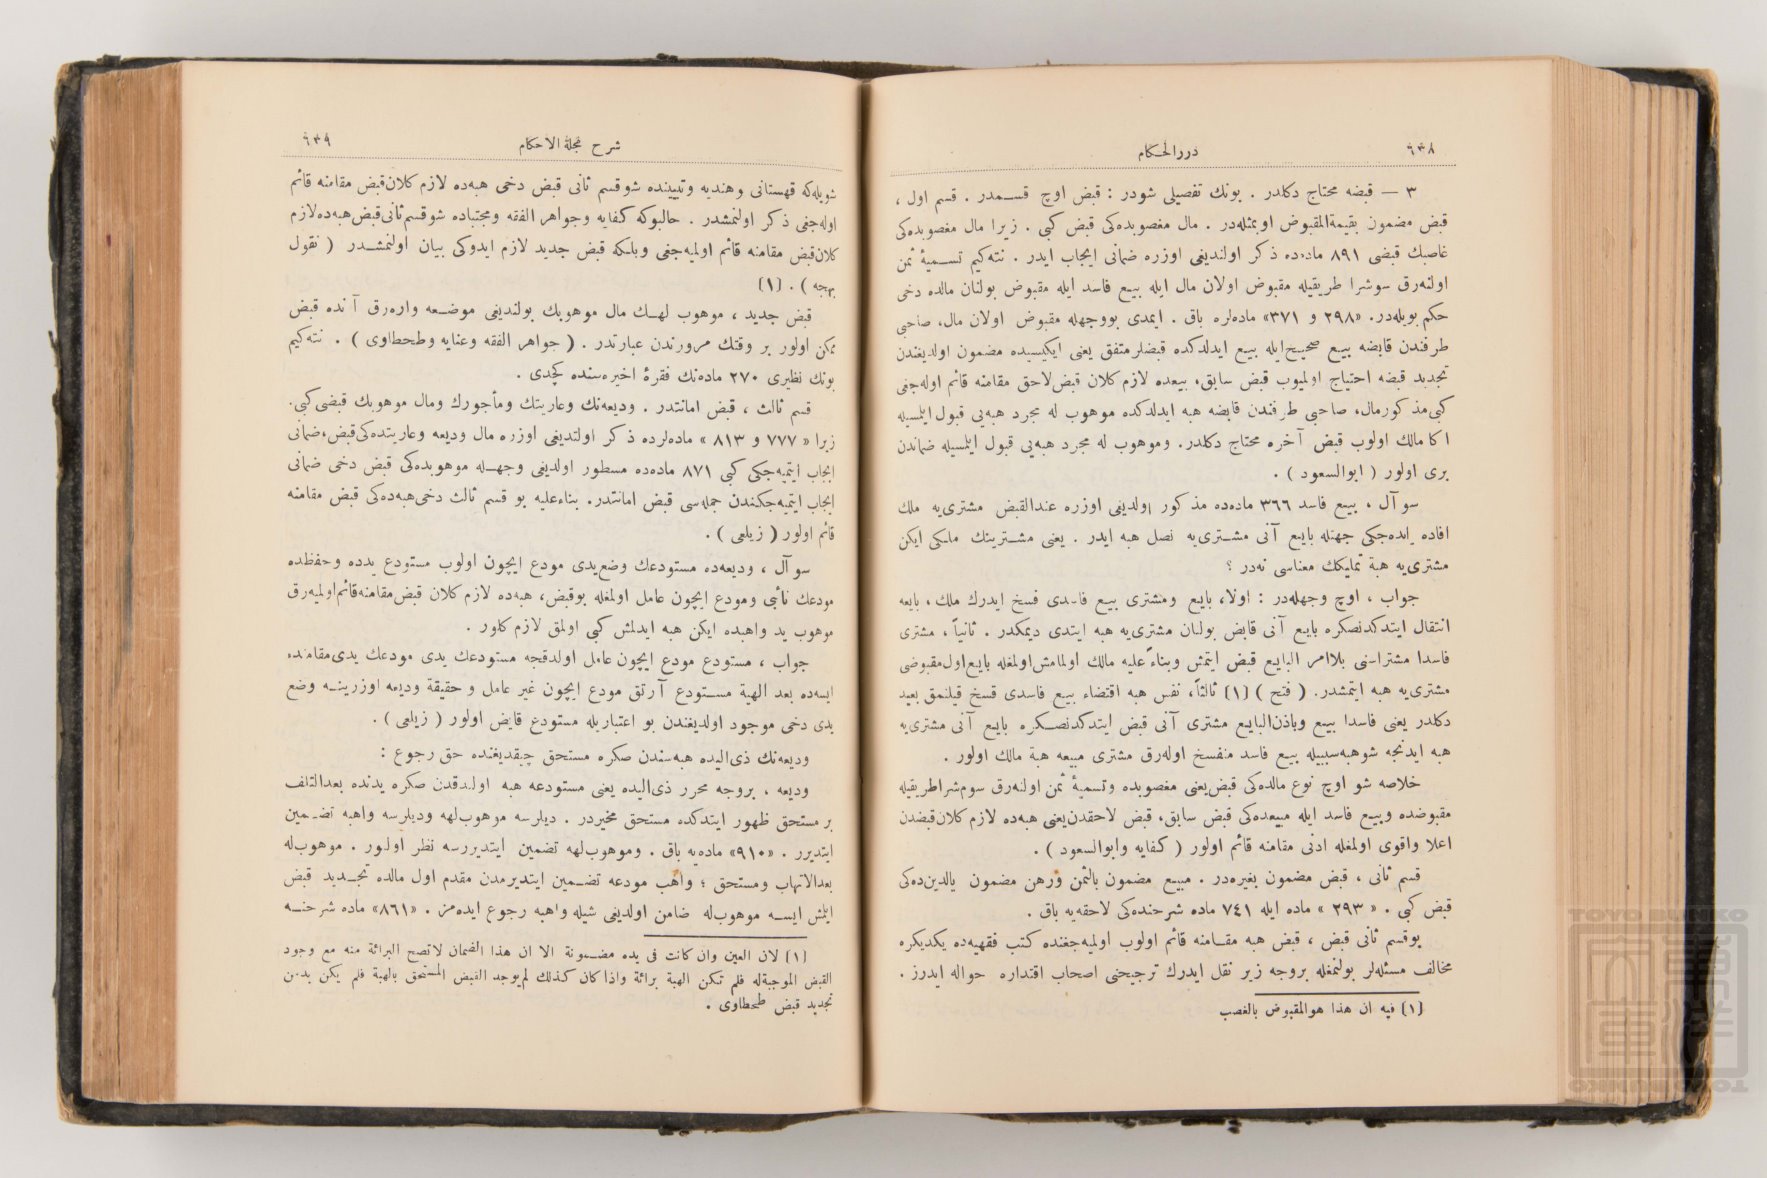 ٦٣٨
دررالحكام
٣ — قبضه محتاج دكلدر . بونك تفصيلى شودر : قبض اوچ قسمدر . قسم اول ،
قبض مضمون بقيمةالمقبوض اوبمثله‌در . مال مغصوبده‌كى قبض كبى . زيرا مال مغصوبده‌كى
غاصبك قبضى ٨٩١ ماده‌ده ذكر اولنديغى اوزره ضمانى ايجاب ايدر . نته‌كيم تسميۀ ثمن
اولنه‌رق سوم‌شرا طريقيله مقبوض اولان مال ايله بيع فاسد ايله مقبوض بولنان مالده دخى
حكم بويله‌در. «٢٩٨ و ٣٧١» ماده‌لره باق . ايمدى بووجهله مقبوض اولان مال، صاحبى
طرفندن قابضه بيع صحيح‌ايله بيع ايدلدكده قبضلرمتفق يعنى ايكيسيده مضمون اولديغندن
تجديد قبضه احتياج اولميوب قبض سابق، بيعده لازم كلان قبض‌لاحق مقامنه قائم اوله‌جغى
كبى‌مذكورمال، صاحبى طرفندن قابضه هبه ايدلدكده موهوب له مجرد هبه‌يى قبول ايلمسيله
اكا مالك اولوب قبض آخره محتاج دكلدر. وموهوب له مجرد هبه‌يى قبول ايلمسيله ضماندن
برى اولور ( ابوالسعود ) .
سوآل ، بيع فاسد ٣٦٦ ماده‌ده مذكور اولديغى اوزره عندالقبض مشترى‌يه ملك
افاده ايده‌جكى جهتله بايع آنى مشترى‌يه نصل هبه ايدر . يعنى مشترينك ملكى ايكن
مشترى‌يه هبۀ تمليكك معناسى نه‌در ؟
جواب ، اوچ وجهله‌در : اولا، بايع ومشترى بيع فاسدى فسخ ايدرك ملك ، بايعه
انتقال ايتدكدنصكره بايع آنى قابض بولنان مشترى‌يه هبه ايتدى ديمكدر . ثانياً ، مشترى
فاسدا مشتراسنى بلاامر البايع قبض ايتمش وبناءً عليه مالك اولمامش‌اولمغله بايع‌اول‌مقبوضى
مشترى‌يه هبه ايتمشدر. ( فتح ) [١] ثالثاً، نفس هبه اقتضاء بيع فاسدى فسخ قيلنمق بعيد
دكلدر يعنى فاسدا بيع وباذن‌البايع مشترى آنى قبض ايتدكدنصكره بايع آنى مشترى‌يه
هبه ايدنجه شوهبه‌سببيله بيع فاسد منفسخ اوله‌رق مشترى مبيعه هبة مالك اولور .
خلاصه شو اوچ نوع مالده‌كى قبض‌يعنى مغصوبده وتسميۀ ثمن اولنه‌رق سوم‌شراطريقيله
مقبوضده وبيع فاسد ايله مبيعده‌كى قبض سابق، قبض لاحقدن‌يعنى هبه‌ده لازم كلان‌قبضدن
اعلا واقوى اولمغله ادنى مقامنه قائم اولور ( كفايه وابوالسعود ) .
قسم ثانى ، قبض مضمون بغيره‌در . مبيع مضمون بالثمن ورهن مضمون بالدين‌ده‌كى
قبض كبى . « ٢٩٣ » ماده ايله ٧٤١ ماده شرحنده‌كى لاحقه‌يه باق .
بوقسم ثانى قبض ، قبض هبه مقامنه قائم اولوب اولميه‌جغنده كتب فقهيه‌ده يكديكره
مخالف مسئله‌لر بولنمغله بروجه زير نقل ايدرك ترجيحنى اصحاب اقتداره حواله ايدرز .
[١] فيه ان هذا هوالمقبوض بالغصب
٦٣٩
شرح مجلة الاحكام
شويله‌كه قهستانى وهنديه وتبيينده شوقسم ثانى قبض دخى هبه‌ده لازم كلان‌قبض مقامنه قائم
اوله‌جغى ذكر اولنمشدر . حالبوكه كفايه وجواهر الفقه ومجتباده شوقسم‌ثانى‌قبض‌هبه‌ده‌لازم
كلان‌قبض مقامنه قائم اولميه‌جغى وبلكه قبض جديد لازم ايدوكى بيان اولنمشدر ( نقول
بهجه ) . [١]
قبض جديد ، موهوب لهك مال موهوبك بولنديغى موضعه واره‌رق آنده قبض
ممكن اولور بر وقتك مرورندن عبارتدر . ( جواهر الفقه وعنايه وطحطاوى ) . نته‌كيم
بونك نظيرى ٢٧٠ ماده‌نك فقرۀ اخيره‌سنده كچدى .
قسم ثالث ، قبض امانتدر . وديعه‌نك وعاريتك ومأجورك ومال موهوبك قبضى كبى.
زيرا « ٧٧٧ و ٨١٣ » ماده‌لرده ذكر اولنديغى اوزره مال وديعه وعاريتده‌كى‌قبض،ضمانى
ايجاب ايتميه‌جكى كبى ٨٧١ ماده‌ده مسطور اولديغى وجهله موهوبده‌كى قبض دخى ضمانى
ايجاب ايتميه‌جكندن جمله‌سى قبض امانتدر. بناءعليه بو قسم ثالث دخى‌هبه‌ده‌كى قبض مقامنه
قائم اولور ( زيلعى ) .
سوآل ، وديعه‌ده مستودعك وضع‌يدى مودع ايچون اولوب مستودع يدده وحفظده
مودعك نائبى ومودع ايچون عامل اولمغله بوقبض، هبه‌ده لازم كلان قبض‌مقامنه‌قائم‌اولميه‌رق
موهوب يد واهبده ايكن هبه ايدلمش كبى اولمق لازم كلور .
جواب ، مستودع مودع ايچون عامل اولدقجه مستودعك يدى مودعك يدى‌مقامنده
ايسه‌ده بعد الهبة مستودع آرتق مودع ايچون غير عامل و حقيقة وديعه اوزرينه وضع
يدى دخى موجود اولديغندن بو اعتبارله مستودع قابض اولور ( زيلعى ) .
وديعه‌نك ذى‌اليده هبه‌سندن صكره مستحق چيقديغنده حق رجوع :
وديعه ، بروجه محرر ذى‌اليده يعنى مستودعه هبه اولندقدن صكره يدنده بعدالتلف
بر مستحق ظهور ايتدكده مستحق مخيردر . ديلرسه موهوب‌لهه وديلرسه واهبه تضمين
ايتديرر . «٩١٠» ماده‌يه باق . وموهوب‌لهه تضمين ايتديررسه نظر اولنور . موهوب‌له
بعدالاتهاب ومستحق ؛ واهب مودعه تضمين ايتديرمدن مقدم اول مالده تجديد قبض
ايلمش ايسه موهوب‌له ضامن اولديغى شيله واهبه رجوع ايده‌مز . «٨٦١» ماده شرحنه
[١] لان العين وان كانت فى يده مضمونة الا ان هذا الضمان لاتصح البرائة منه مع وجود
القبض الموجبةله فلم تكن الهبة برائة واذا كان كذلك لم‌يوجد القبض المستحق بالهبة فلم يكن بد من
تجديد قبض طحطاوى .
TOYO BUNKO